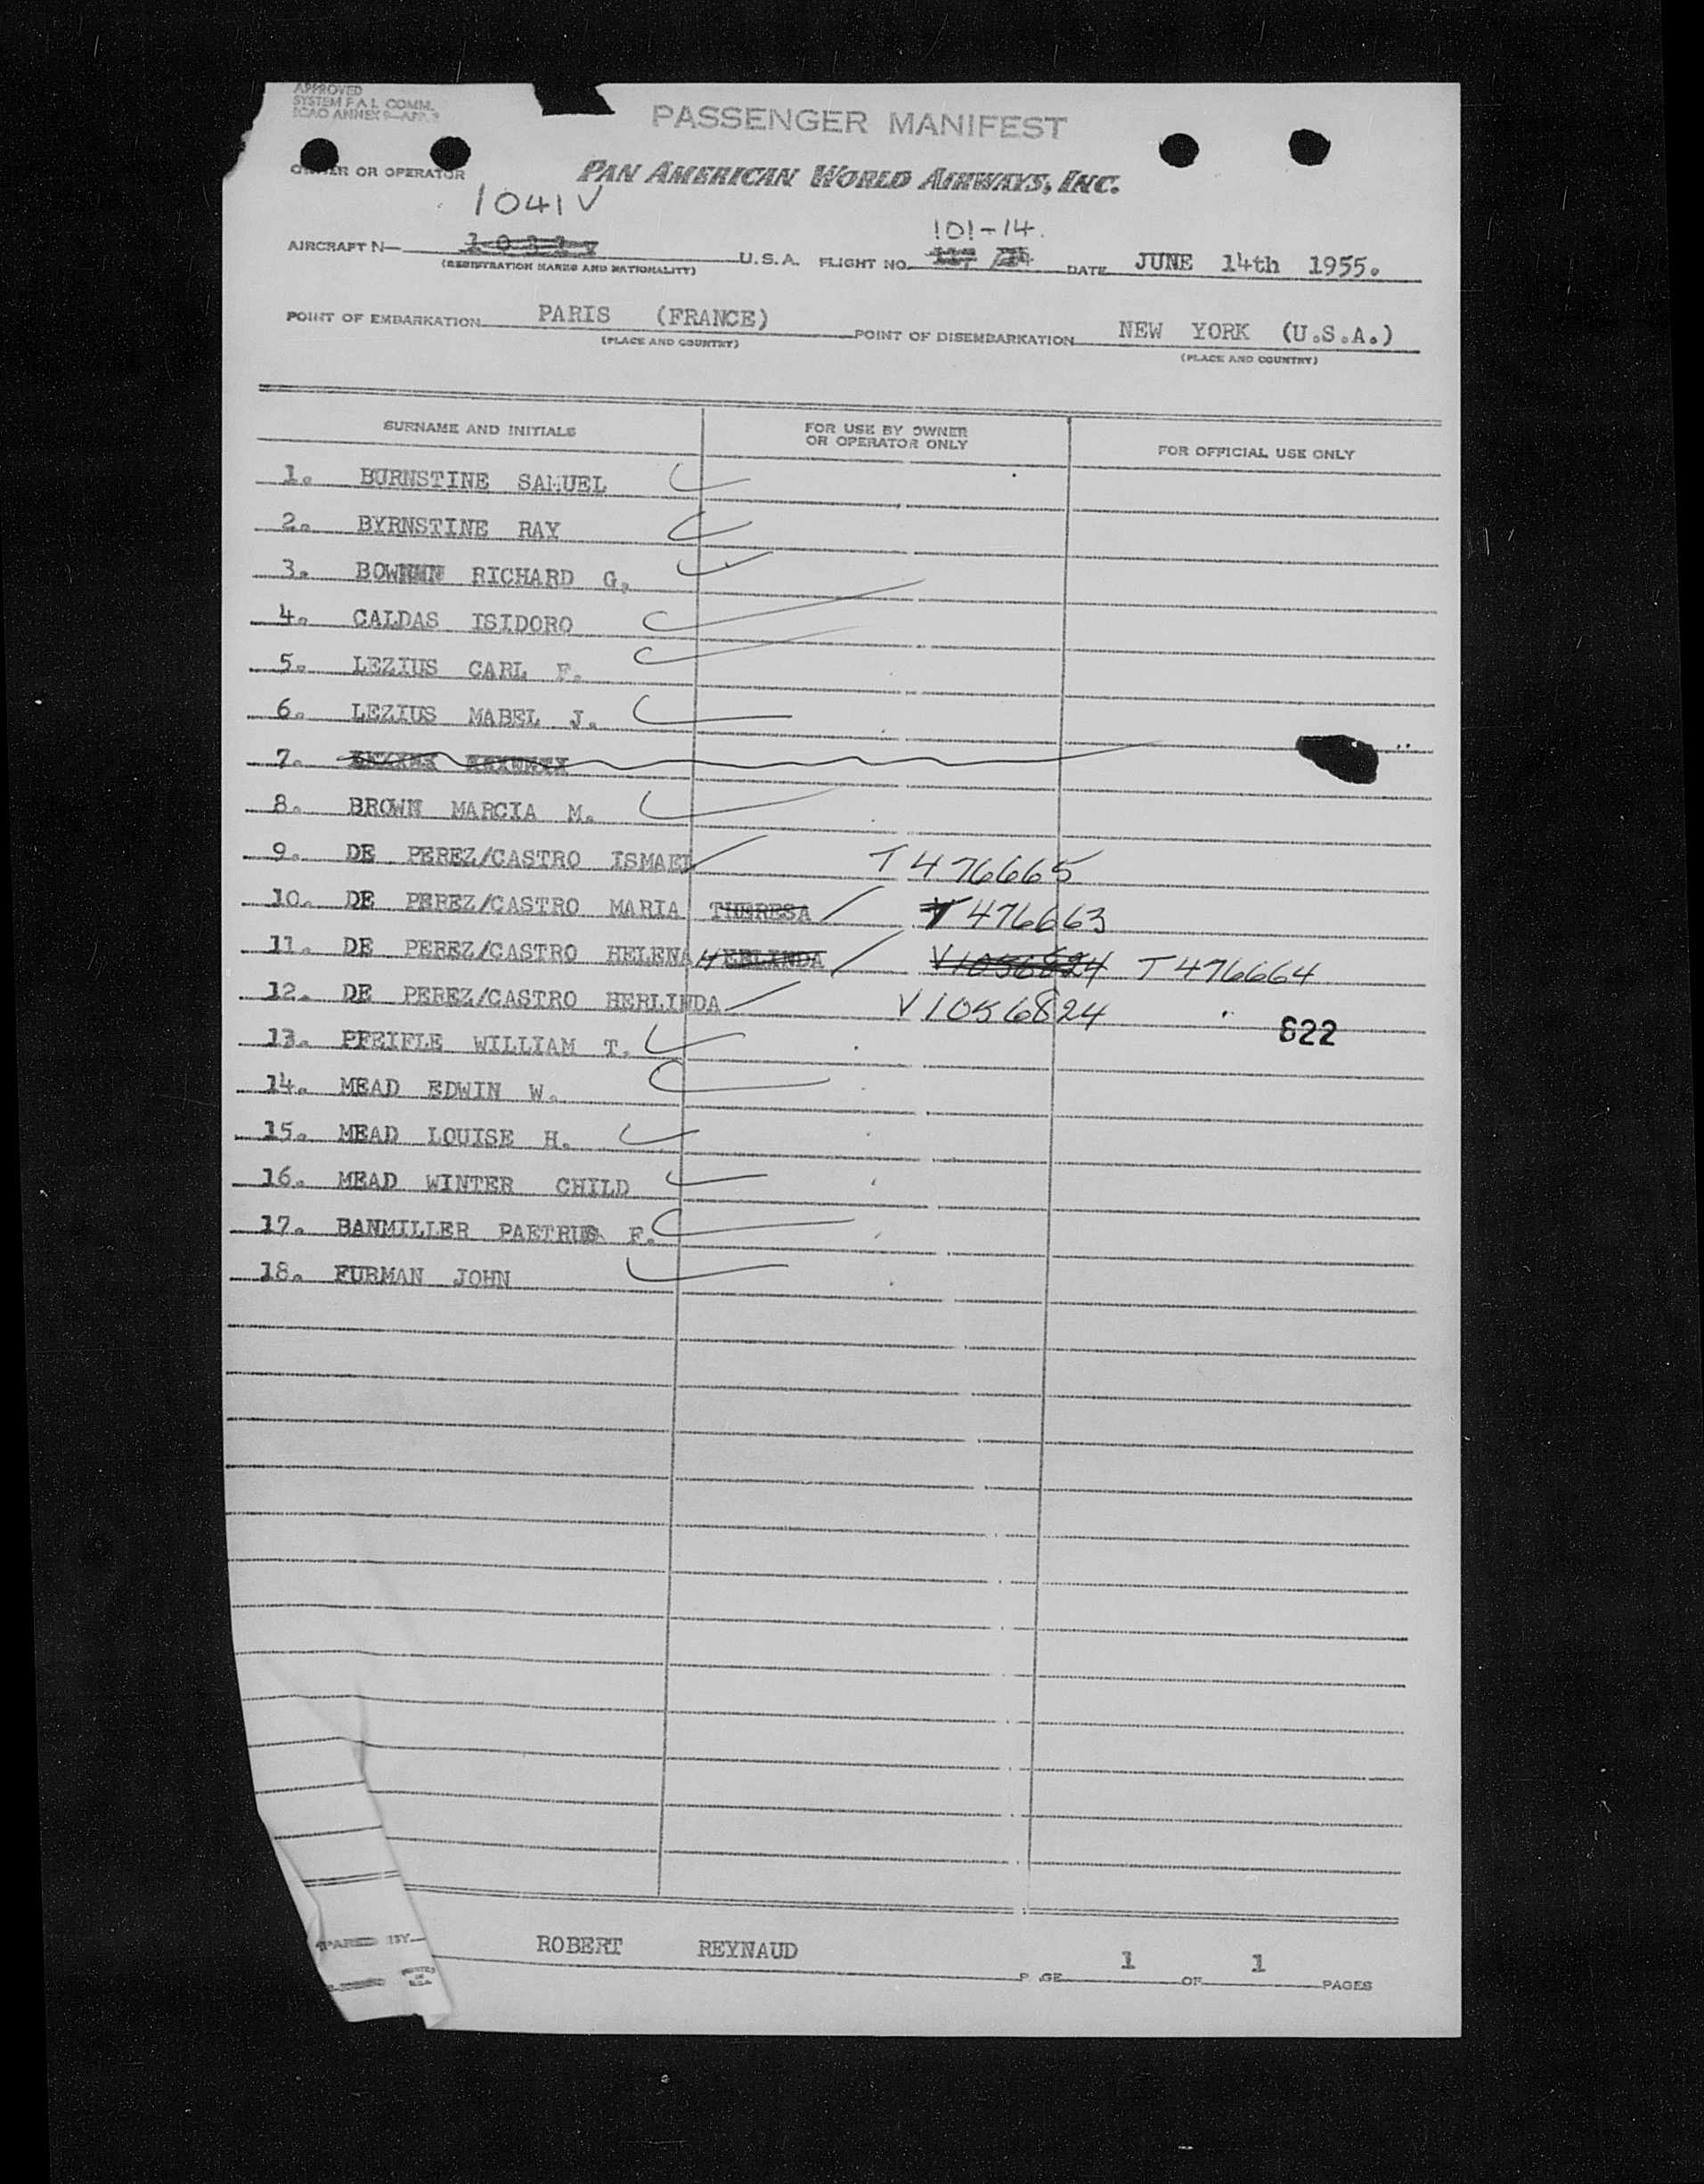 APPROVED
SYSTEM F.A.L. COMM.
ICAO ANNEX 9—APP. 3
PASSENGER MANIFEST
OWNER OR OPERATOR PAN AMERICAN WORLD AIRWAYS, INC.
1041V 101-14.
AIRCRAFT N— U.S.A. FLIGHT NO. DATE JUNE 14th 1955.
(REGISTRATION MARKS AND NATIONALITY)
POINT OF EMBARKATION PARIS (FRANCE) POINT OF DISEMBARKATION NEW YORK (U.S.A.)
(PLACE AND COUNTRY) (PLACE AND COUNTRY)
SURNAME AND INITIALS FOR USE BY OWNER OR OPERATOR ONLY FOR OFFICIAL USE ONLY
1. BURNSTINE SAMUEL
2. BYRNSTINE RAY
3. RICHARD G.
4. CALDAS ISIDORO
5. LEZIUS CARL F.
6. LEZIUS MABEL J.
7.
8. BROWN MARCIA M.
9. DE PEREZ/CASTRO ISMAEL T476665
10. DE PEREZ/CASTRO MARIA THERESA T476663
11. DE PEREZ/CASTRO HELENA HERLINDA V1056824 T476664
12. DE PEREZ/CASTRO HERLINDA V1056824
622
13. PFEIFLE WILLIAM T.
14. MEAD EDWIN W.
15. MEAD LOUISE H.
16. MEAD WINTER CHILD
17. BANMILLER F.
18. FURMAN JOHN
ROBERT REYNAUD
PAGE 1 OF 1 PAGES